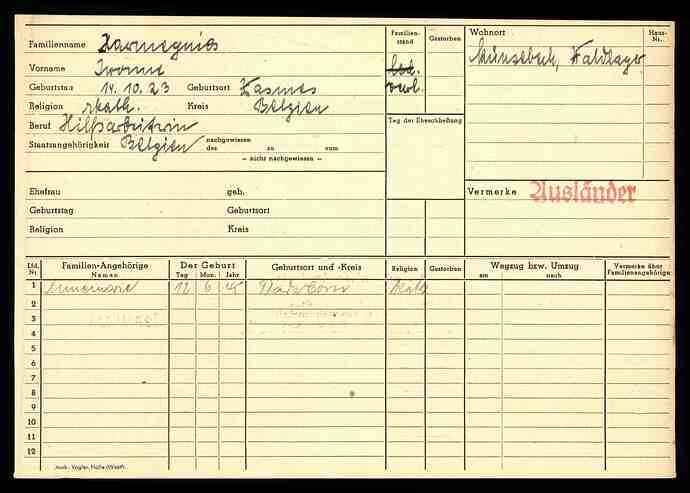 Familienname Harmegnies
Familien-
stand
Gestorben
Wohnort
Haus-
Nr.
Vorname Ivonne
led.
verl.
Waldlager
Geburtstag 14. 10. 23 Geburtsort
Religion rkath. Kreis Belgien
Beruf Hilfsarbeiterin
Tag der Eheschließung
Staatsangehörigkeit Belgien nachgewiesen
des zu vom
– nicht nachgewiesen –
Ehefrau geb.
Vermerke Ausländer
Geburtstag Geburtsort
Religion Kreis
Lfd.
Nr.
Familien-Angehörige
Namen
Der Geburt
Tag Mon. Jahr
Geburtsort und -Kreis
Religion
Gestorben
Wegzug bzw. Umzug
am nach
Vermerke über
Familienangehörige
1 Annemarie 12 6 rkath
2
3
4
5
6
7
8
9
10
11
12